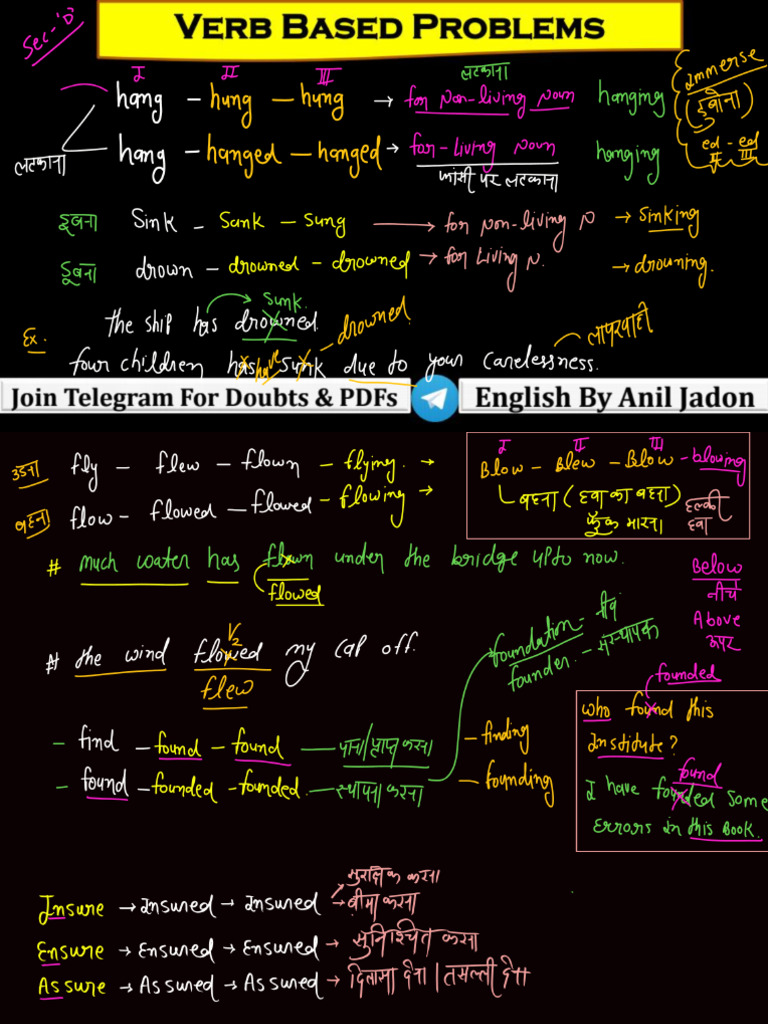 Sec-'D'
VERB BASED PROBLEMS
I II III लटकाना
hang - hung - hung → for non-living noun hanging
immerse
(डुबोना)
लटकाना
hang - hanged - hanged → for-living noun hanging
ed - ed
II III
फांसी पर लटकाना
डूबना Sink - Sank - Sung → for non-living N → Sinking
डूबना drown - drowned - drowned → for Living N. → drowning.
Sunk.
Ex. The ship has drowned. drowned.
लापरवाही
four children has have Sunk due to your carelessness.
Join Telegram For Doubts & PDFs English By Anil Jadon
I II III
उड़ना fly - flew - flown - flying. →
Blow - Blew - Blow - blowing
बहना flow - flowed - flowed - flowing →
बहना (हवा का बहना)
फूँक मारना
हल्की
हवा
# much water has flown under the bridge upto now.
flowed
Below
नीचे
Above
ऊपर
V2
# the wind flowed my cap off.
flew
foundation - नींव
founder - संस्थापक
founded
who found this
Institute?
- find - found - found - पाना/प्राप्त करना - finding
- found - founded - founded. - स्थापना करना - founding
found
I have founded some
errors in this Book.
सुरक्षित करना
Insure → Insured → Insured → बीमा करना
Ensure → Ensured → Ensured → सुनिश्चित करना
Assure → Assured → Assured → दिलासा देना | तसल्ली देना